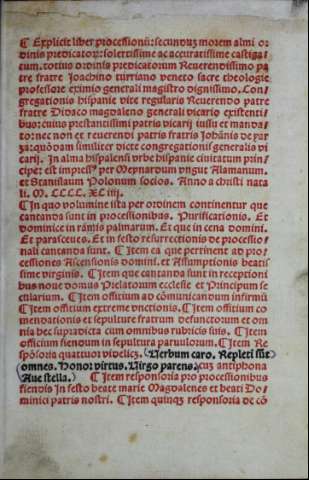 ¶ Explicit liber processionũ: secundũz morem almi or
dinis predicatorꝝ: solertissime ac accuratissime castiga
tum. totius ordinis predicatorum Reuerendissimo pa
tre fratre Joachino turriano veneto sacre theologie
professore eximio generali magistro dignissimo. Con
gregationis hispanie vite regularis Reuerendo patre
fratre Didaco magdaleno generali vicario existenti
bus: cuius prestantissimi patris vicarij iussu et manda
to: nec non et reuerendi patris fratris Johãnis de
quõdam similiter dicte congregationis generalis vi
carij. In alma hispalensi vrbe hispanie ciuitatum prin
cipe: est impressꝰ per Meynardum vngut Alamanum.
et Stanislaum Polonum socios. Anno a christi nata
li. M. CCCC. XC iiij.
¶ In quo volumine ista per ordinem continentur que
cantanda sunt in processionibus. Purificationis. Et
dominice in ramis palmarum. Et que in cena domini.
Et parasceues. Et in festo resurrectionis de processio
nali cantanda sunt. ¶ Item ea que pertinent ad pro
cessiones Ascensionis domini. et Assumptionis beatis
sime virginis. ¶ Item que cantanda sunt in receptioni
bus noue domus Prelatorum ecclesie et Principum se
cularium. ¶ Item offitium ad cõmunicandum infirmũ
¶ Item offitium extreme vnctionis. ¶ Item offitium co
mendationis et sepulture fratrum defunctorum et om
nia hec supradicta cum omnibus rubricis suis. ¶ Item
officium fiendum in sepultura paruulorum. ¶ Item Re
spõsoria quattuor videlicꝫ. Verbum caro. Repleti sũt
omnes. Honor virtus. Virgo parens. cuz antiphona
Aue stella. ¶ Item responsoria pro processionibus
fiendis In festo beate marie Magdalenes et beati Do
minici patris nostri. ¶ Item quinqꝫ responsoria de cõ